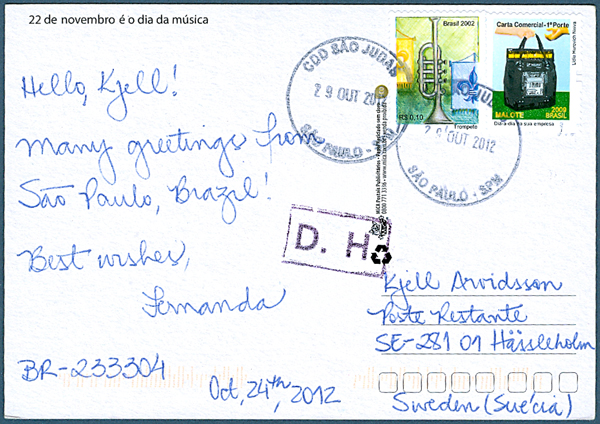 22 de novembro é o dia da música
Hello, Kjell!
Many greetings from
São Paulo, Brazil!
Best wishes,
Fernanda
BR-233304
Oct, 24th, 2012
CDD SÃO JUDAS
29 OUT 2012
SÃO PAULO - SPM
Brasil 2002
R$ 0,10
Trompete
Carta Comercial - 1º Porte
MALOTE
2009
BRASIL
Dia-a-dia da sua empresa
29 OUT 2012
SÃO PAULO - SPM
D. H
Kjell Arvidsson
Poste Restante
SE-281 01 Hässleholm
Sweden (Suécia)